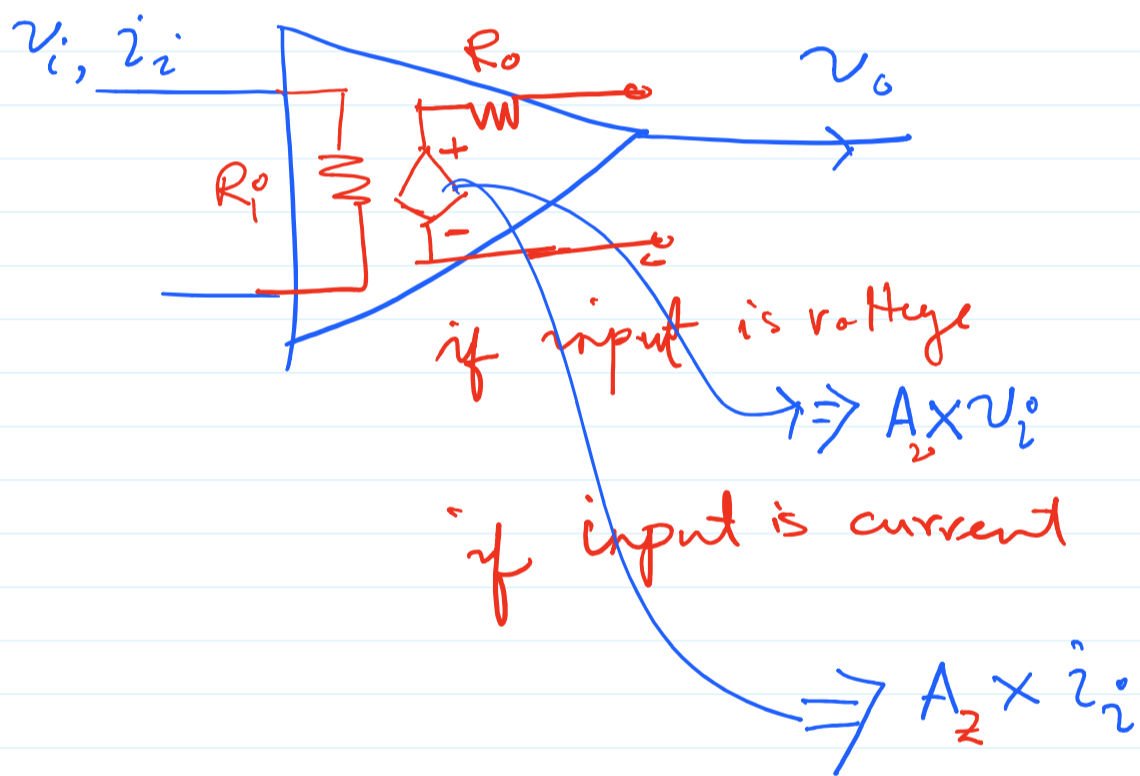 v_i, i_i
R_o
v_o
R_i
+
-
if input is voltage
⇒ A_v × v_i
if input is current
⇒ A_z × i_i